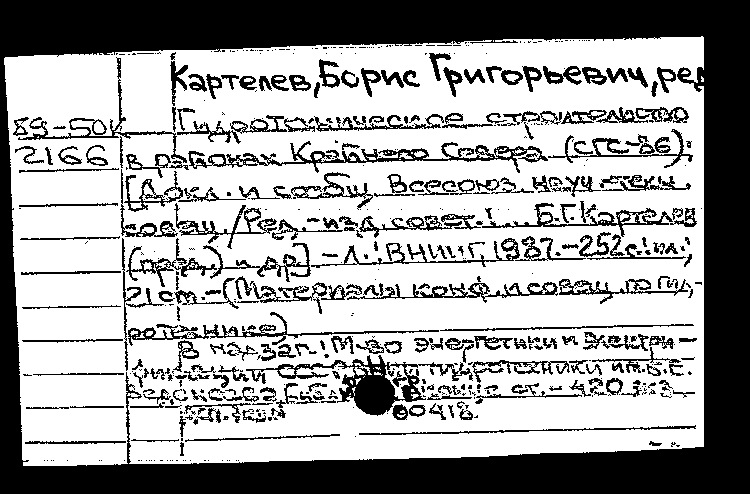 Картелев, Борис Григорьевич, ред
89-50К Гидротехническое строительство
2166 в районах Крайнего Севера (СГС-86):
[Докл. и сообщ. Всесоюз. науч.-техн.
совещ. / Ред.-изд. совет: ... Б.Г. Картелев
(пред.) и др.] - Л.: ВНИИГ, 1987. - 252 с.: ил.;
21 см. - (Материалы конф. и совещ. по гид-
ротехнике)
В надзаг.: М-во энергетики и электри-
фикации СССР, ВНИИ гидротехники им. Б.Е.
Веденеева. Библиогр. в конце ст. - 420 экз.
80418.